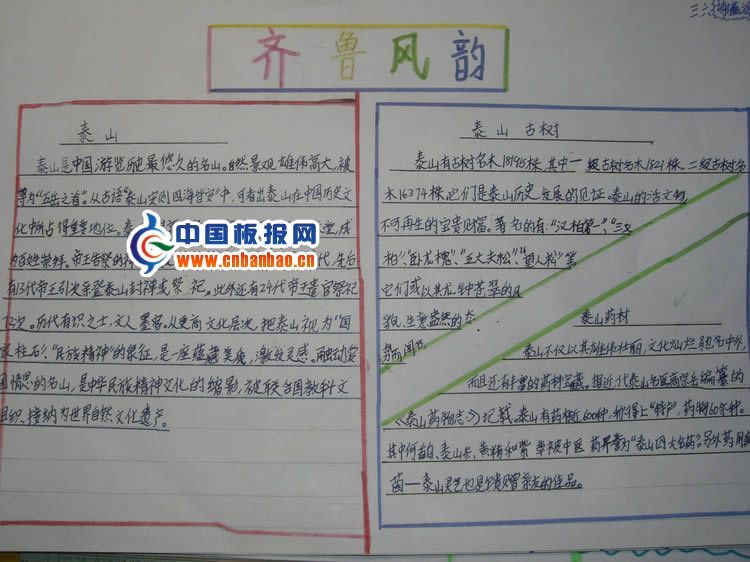 三六
齐鲁风韵
泰山
泰山是中国游览历史最悠久的名山。自然景观雄伟高大，被
尊为“五岳之首”。从古语“泰山安则四海皆安”中，可看出泰山在中国历史文
化中所占得重要地位。泰
堂，成
百姓崇拜。帝王告祭的神
代，先后
有13代帝王引次亲登泰山封禅或祭祀。此外还有24代帝王遣官祭祀
72次。历代有识之士，文人墨客。从更高文化层次，把泰山视为“国
家柱石”、“民族精神”的象征，是一座蕴藏美德，激发灵感。
国情思的名山，是中华民族精神文化的缩影，被联合国教科文
组织，接纳为世界自然文化遗产。
泰山古树
泰山有古树名木18195株，其中一级古树名木1821株，二级古树名
木16374株，它们是泰山历史发展的见证。泰山的活文物
不可再生的宝贵财富。著名的有：“汉柏第一”、“三义
柏”、“卧龙槐”、“五大夫松”、“望人松”等
它们或以其
貌，生意盎然的态
泰山药材
泰山不仅以其雄伟壮丽，文化灿烂驰名中外，
而且还有丰富的药材宝藏。据近代泰山名医高宗岳编篡的
《泰山药物志》记载。泰山有药物近600种，称得上“特产”，药物60余种。
其中何首乌、泰山参、黄精和紫草被中医药界誉为“泰山四大名药”。另外药用
菌—泰山灵芝也是馈赠亲友的佳品。
中国板报网
www.cnbanbao.cn